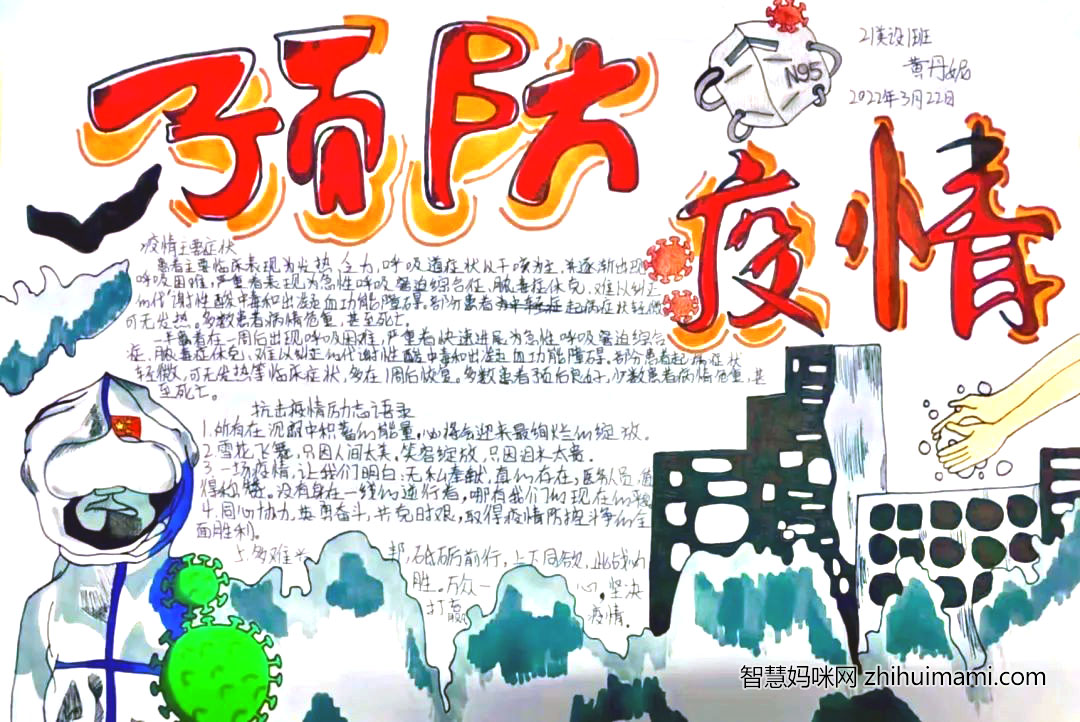 预防
疫情
N95
21美设1班
黄丹妮
2022年3月22日
疫情主要症状
患者主要临床表现为发热,乏力,呼吸道症状以干咳为主,并逐渐出现
呼吸困难,严重者表现为急性呼吸窘迫综合征,脓毒症休克,难以纠正
的代谢性酸中毒和出凝血功能障碍,部分患者起病症状轻微
可无发热。多数患者病情危重,甚至死亡。
一半患者在一周后出现呼吸困难,严重者快速进展为急性呼吸窘迫综合
症,脓毒症休克,难以纠正的代谢性酸中毒和出凝血功能障碍,部分患者起病症状
轻微,可无发热等临床症状,多在1周后恢复。多数患者预后良好,少数患者病情危重,甚
至死亡。
抗击疫情励志语录
1.所有在沉醒中积蓄的能量,必将会迎来最绚烂的绽放。
2.雪花飞舞,只因人间太美,笑容绽放,只因泪水太苦。
3.一场疫情,让我们明白:无私奉献,真的存在,医务人员,值
得称赞。没有身在一线的逆行者,哪有我们的现在的
4.同心协力,共勇奋斗,共克时艰,取得疫情防控斗争的全
面胜利。
5.多难兴 邦,砥砺前行,上下同欲,此战必
胜。万众一 心,坚决
打赢 疫情。
智慧妈咪网 zhihuimami.com